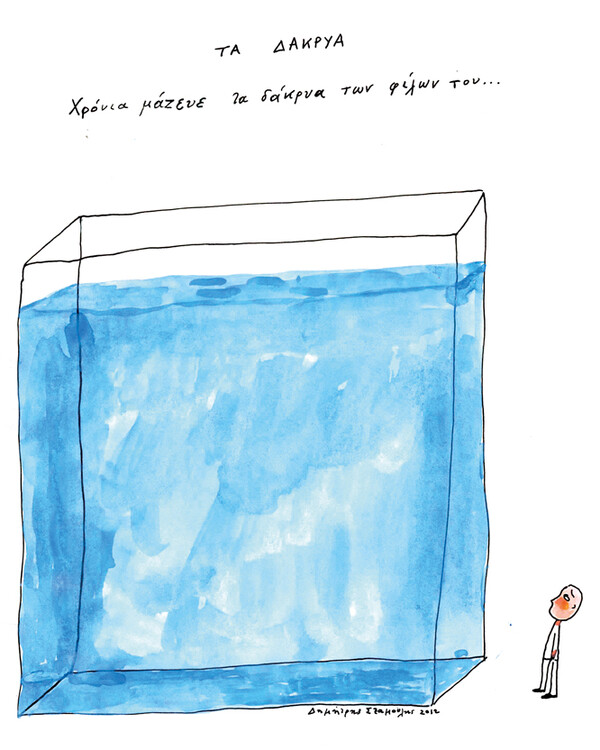 ΤΑ ΔΑΚΡΥΑ
Χρόνια μάζευε τα δάκρυα των φίλων του...
Δημήτρης Σταμούλης 2012